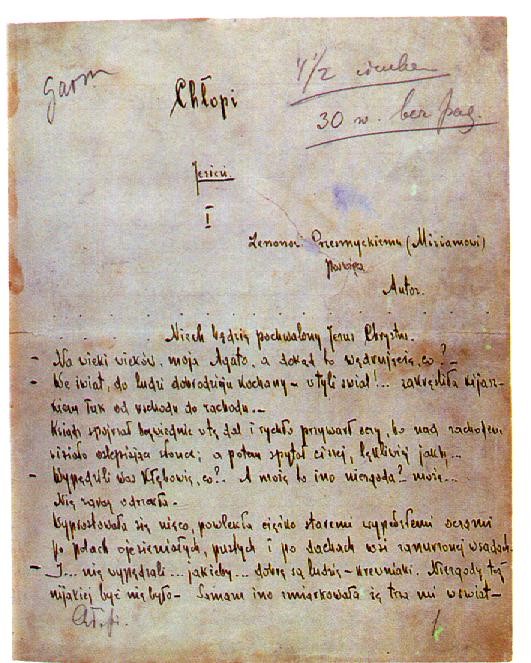 garm
1 1/2
30 w. bez pag.
Chłopi
Jesień.
I
Zenonowi Przesmyckiemu (Miriamowi)
poświęca
Autor.
Niech będzie pochwalony Jezus Chrystus.
– Na wieki wieków, moja Agato, a dokąd to wędrujecie, co? –
– We świat, do ludzi dobrodzieju kochany – w tyli świat!... zakreśliła kijasz-
kiem łuk od wschodu do zachodu. –
Ksiądz spojrzał bezwiednie w tę dal i rychło przywarł oczy, bo nad zachodem
wisiało oślepiające słońce; a potem spytał ciszej, lękliwiej jakby...
– Wypędzili was Kłębowie, co?.. A może to ino niezgoda?.. może...
Nie zaraz odrzekła.
Wyprostowała się nieco, powlekła ciężko staremi wypełzłemi oczami
po polach ojesieniałych, pustych i po dachach wsi zanurzonej w sadach.
– I... nie wypędzali... jakżeby... dobre są ludzie – krewniaki. Niezgody też
nijakiej być nie było – Samam ino zmiarkowała że trza mi w świat –